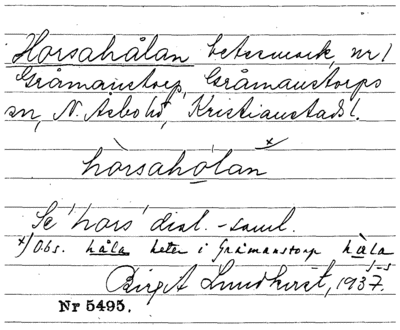 Horsahålan betesmark nr 1
Gråmanstorp, Gråmanstorps
sn, N. Åsbo hd, Kristianstads l.
hòrsahólan x)
Se 'hors' dial.-saml.
x) Obs. håla heter i Gråmanstorp hàla
Birgit Lundkvist, 1937.
Nr 5495.